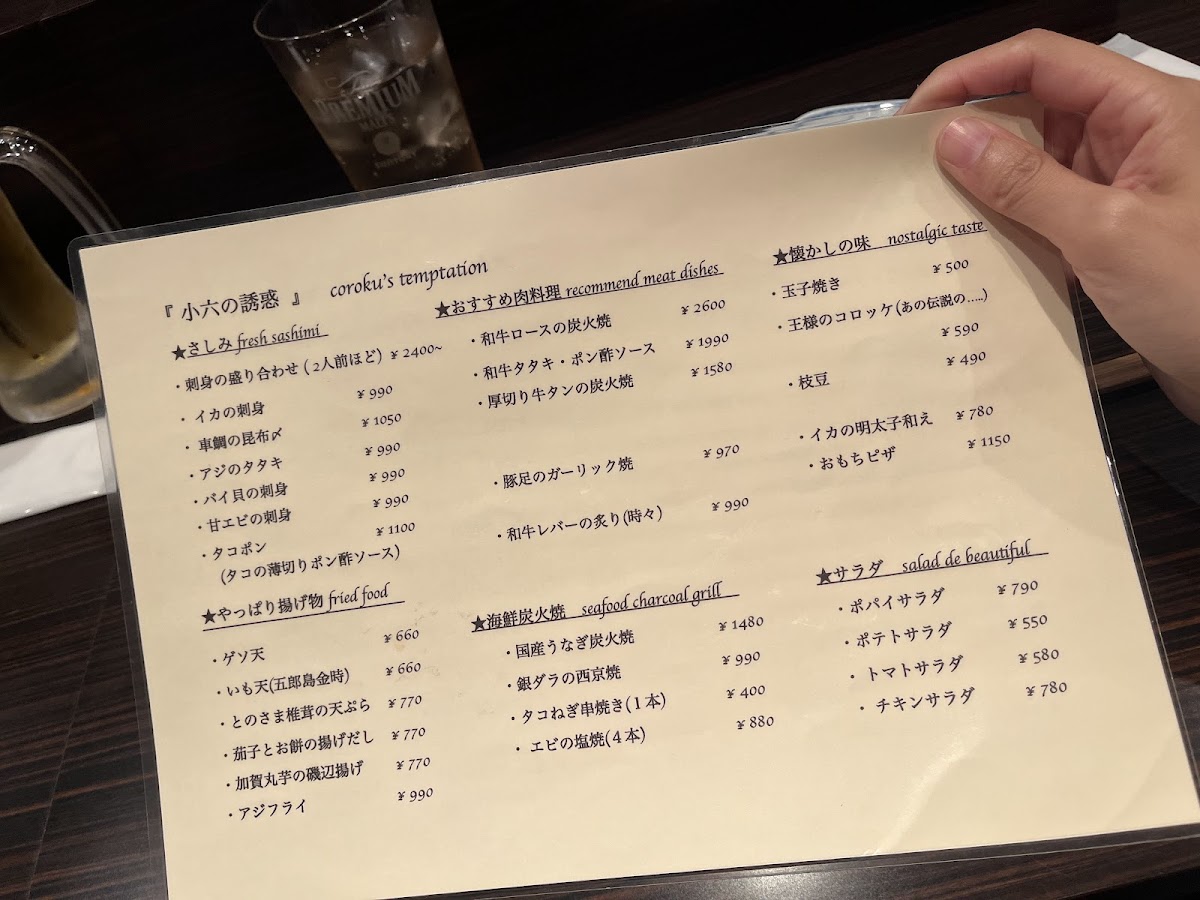 The
PREMIUM
MALT'S
SUNTORY
『 小六の誘惑 』 coroku's temptation
★さしみ fresh sashimi
・刺身の盛り合わせ ( 2人前ほど) ¥ 2400~
・イカの刺身 ¥ 990
・車鯛の昆布〆 ¥ 1050
・アジのタタキ ¥ 990
・バイ貝の刺身 ¥ 990
・甘エビの刺身 ¥ 990
・タコポン ¥ 1100
(タコの薄切りポン酢ソース)
★やっぱり揚げ物 fried food
・ゲソ天 ¥ 660
・いも天(五郎島金時) ¥ 660
・とのさま椎茸の天ぷら ¥ 770
・茄子とお餅の揚げだし ¥ 770
・加賀丸芋の磯辺揚げ ¥ 770
・アジフライ ¥ 990
★おすすめ肉料理 recommend meat dishes
・和牛ロースの炭火焼 ¥ 2600
・和牛タタキ・ポン酢ソース ¥ 1990
・厚切り牛タンの炭火焼 ¥ 1580
・豚足のガーリック焼 ¥ 970
・和牛レバーの炙り(時々) ¥ 990
★海鮮炭火焼 seafood charcoal grill
・国産うなぎ炭火焼 ¥ 1480
・銀ダラの西京焼 ¥ 990
・タコねぎ串焼き(１本) ¥ 400
・エビの塩焼(４本) ¥ 880
★懐かしの味 nostalgic taste
・玉子焼き ¥ 500
・王様のコロッケ(あの伝説の.....)
¥ 590
・枝豆 ¥ 490
・イカの明太子和え ¥ 780
・おもちピザ ¥ 1150
★サラダ salad de beautiful
・ポパイサラダ ¥ 790
・ポテトサラダ ¥ 550
・トマトサラダ ¥ 580
・チキンサラダ ¥ 780